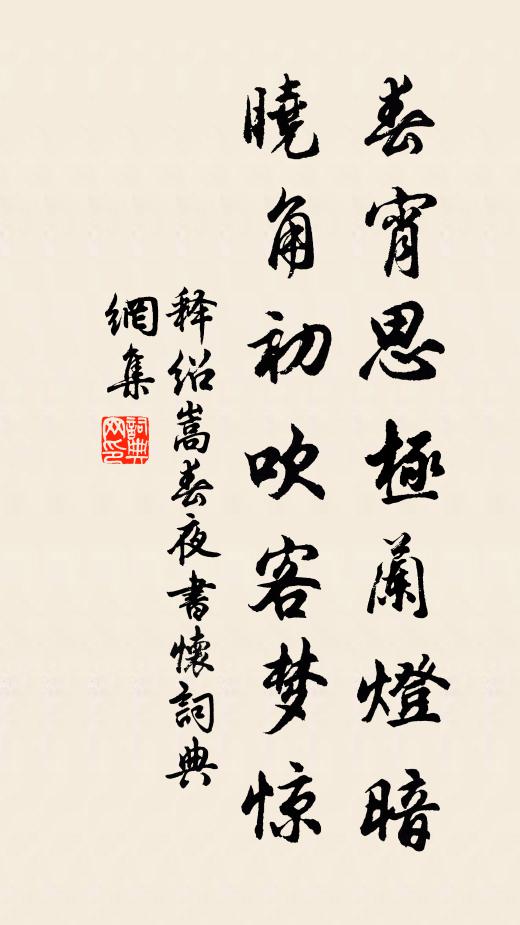 春宵思極蘭燈暗
曉角初吹客梦惊
释绍嵩春夜書懷詞典
網集
詞典
网印